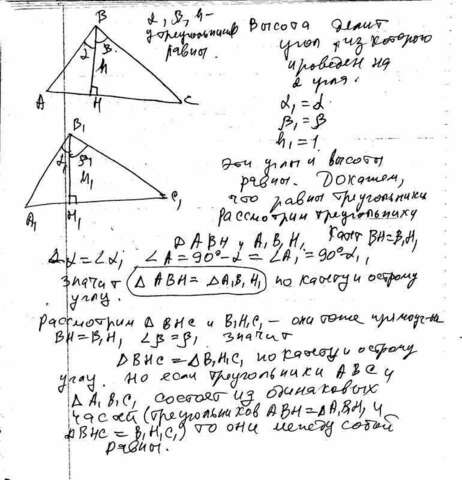 B
α β
h
A H C
B₁
α₁ β₁
h₁
A₁ H₁ C₁
α, β, h –
у треугольников
равны.
Высота делит
угол, из которого
проведен на
2 угла.
α₁ = α
β₁ = β
h₁ = 1
Эти углы и высоты
равны. Докажем,
что равны треугольники
Рассмотрим треугольники
△ABH и A₁B₁H₁ Кат BH=B₁H₁
∠α = ∠α₁ ∠A = 90° – α = ∠A₁ = 90° α₁,
значит △ABH = △A₁B₁H₁ по катету и острому
углу.
Рассмотрим △BHC и B₁H₁C₁ – они тоже
BH = B₁H₁ ∠β = β₁ значит
△BHC = △B₁H₁C₁ по катету и острому
углу. Но если треугольники ABC и
△A₁B₁C₁ состоят из одинаковых
частей (треугольников ABH = △A₁B₁H₁ и
△BHC = B₁H₁C₁) то они между собой
равны.